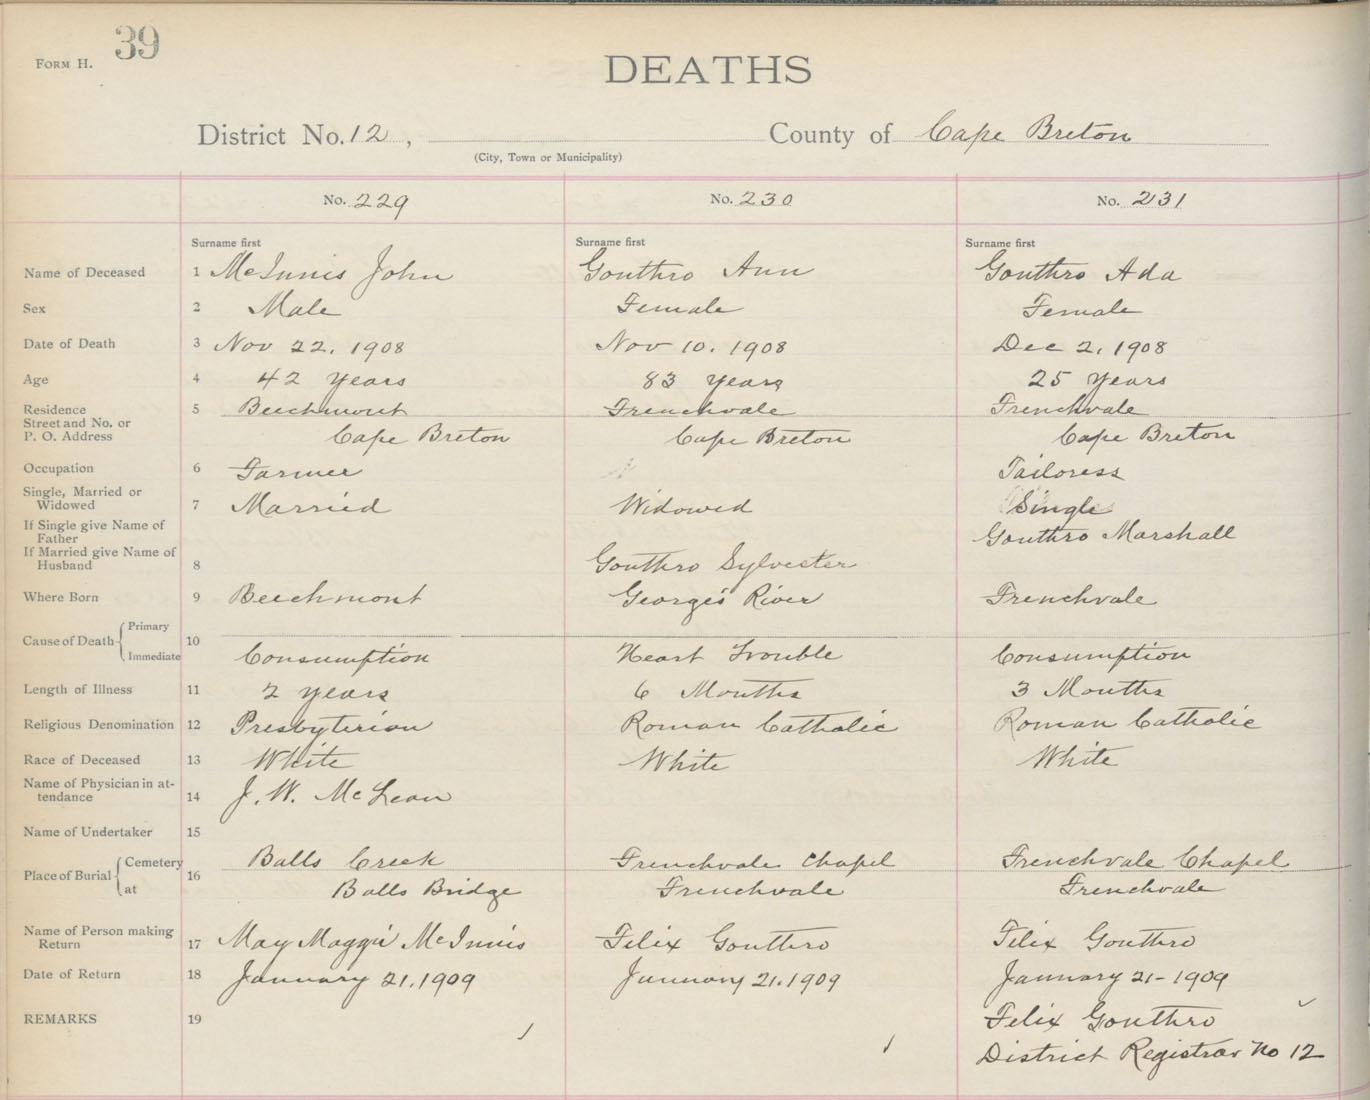 FORM H. 39
DEATHS
District No. 12, County of Cape Breton
(City, Town or Municipality)
No. 229 No. 230 No. 231
Surname first Surname first Surname first
Name of Deceased 1 McInnis John Gouthro Ann Gouthro Ada
Sex 2 Male Female Female
Date of Death 3 Nov 22. 1908 Nov 10. 1908 Dec 2. 1908
Age 4 42 years 83 years 25 years
Residence 5 Beechmont Frenchvale Frenchvale
Street and No. or
P. O. Address Cape Breton Cape Breton Cape Breton
Occupation 6 Farmer Tailoress
Single, Married or
Widowed 7 Married Widowed Single
If Single give Name of
Father Gouthro Marshall
If Married give Name of
Husband 8 Gouthro Sylvester
Where Born 9 Beechmont George's River Frenchvale
Cause of Death Primary 10
Immediate Consumption Heart Trouble Consumption
Length of Illness 11 2 years 6 Months 3 Months
Religious Denomination 12 Presbyterian Roman Catholic Roman Catholic
Race of Deceased 13 White White White
Name of Physician in at-
tendance 14 J. W. McLean
Name of Undertaker 15
Place of Burial Cemetery 16 Balls Creek Frenchvale Chapel Frenchvale Chapel
at Balls Bridge Frenchvale Frenchvale
Name of Person making
Return 17 May Maggie McInnis Felix Gouthro Felix Gouthro
Date of Return 18 January 21. 1909 January 21. 1909 January 21 - 1909
REMARKS 19 Felix Gouthro
District Registrar No 12